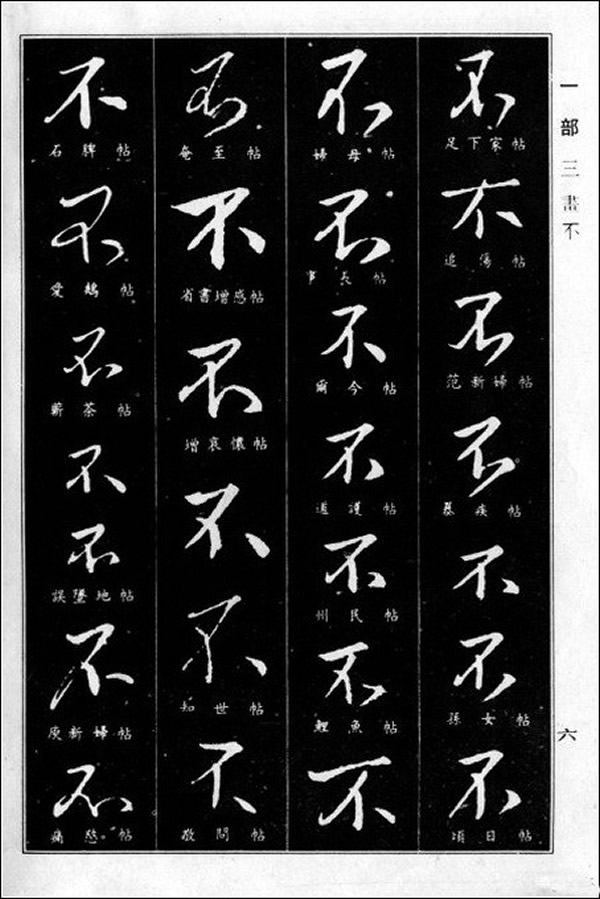 一部 三畫 不
六
不
足下家帖
不
追傷帖
不
范新婦帖
不
疾帖
不
不
孫女帖
不
頃日帖
不
婦母帖
不
長帖
不
爾今帖
不
道護帖
不
州民帖
不
鯉魚帖
不
不
奄至帖
不
省書增感帖
不
增哀懷帖
不
不
知世帖
不
敬問帖
不
石脾帖
不
愛鵝帖
不
蘄茶帖
不
不
誤墜地帖
不
庾新婦帖
不
痛帖